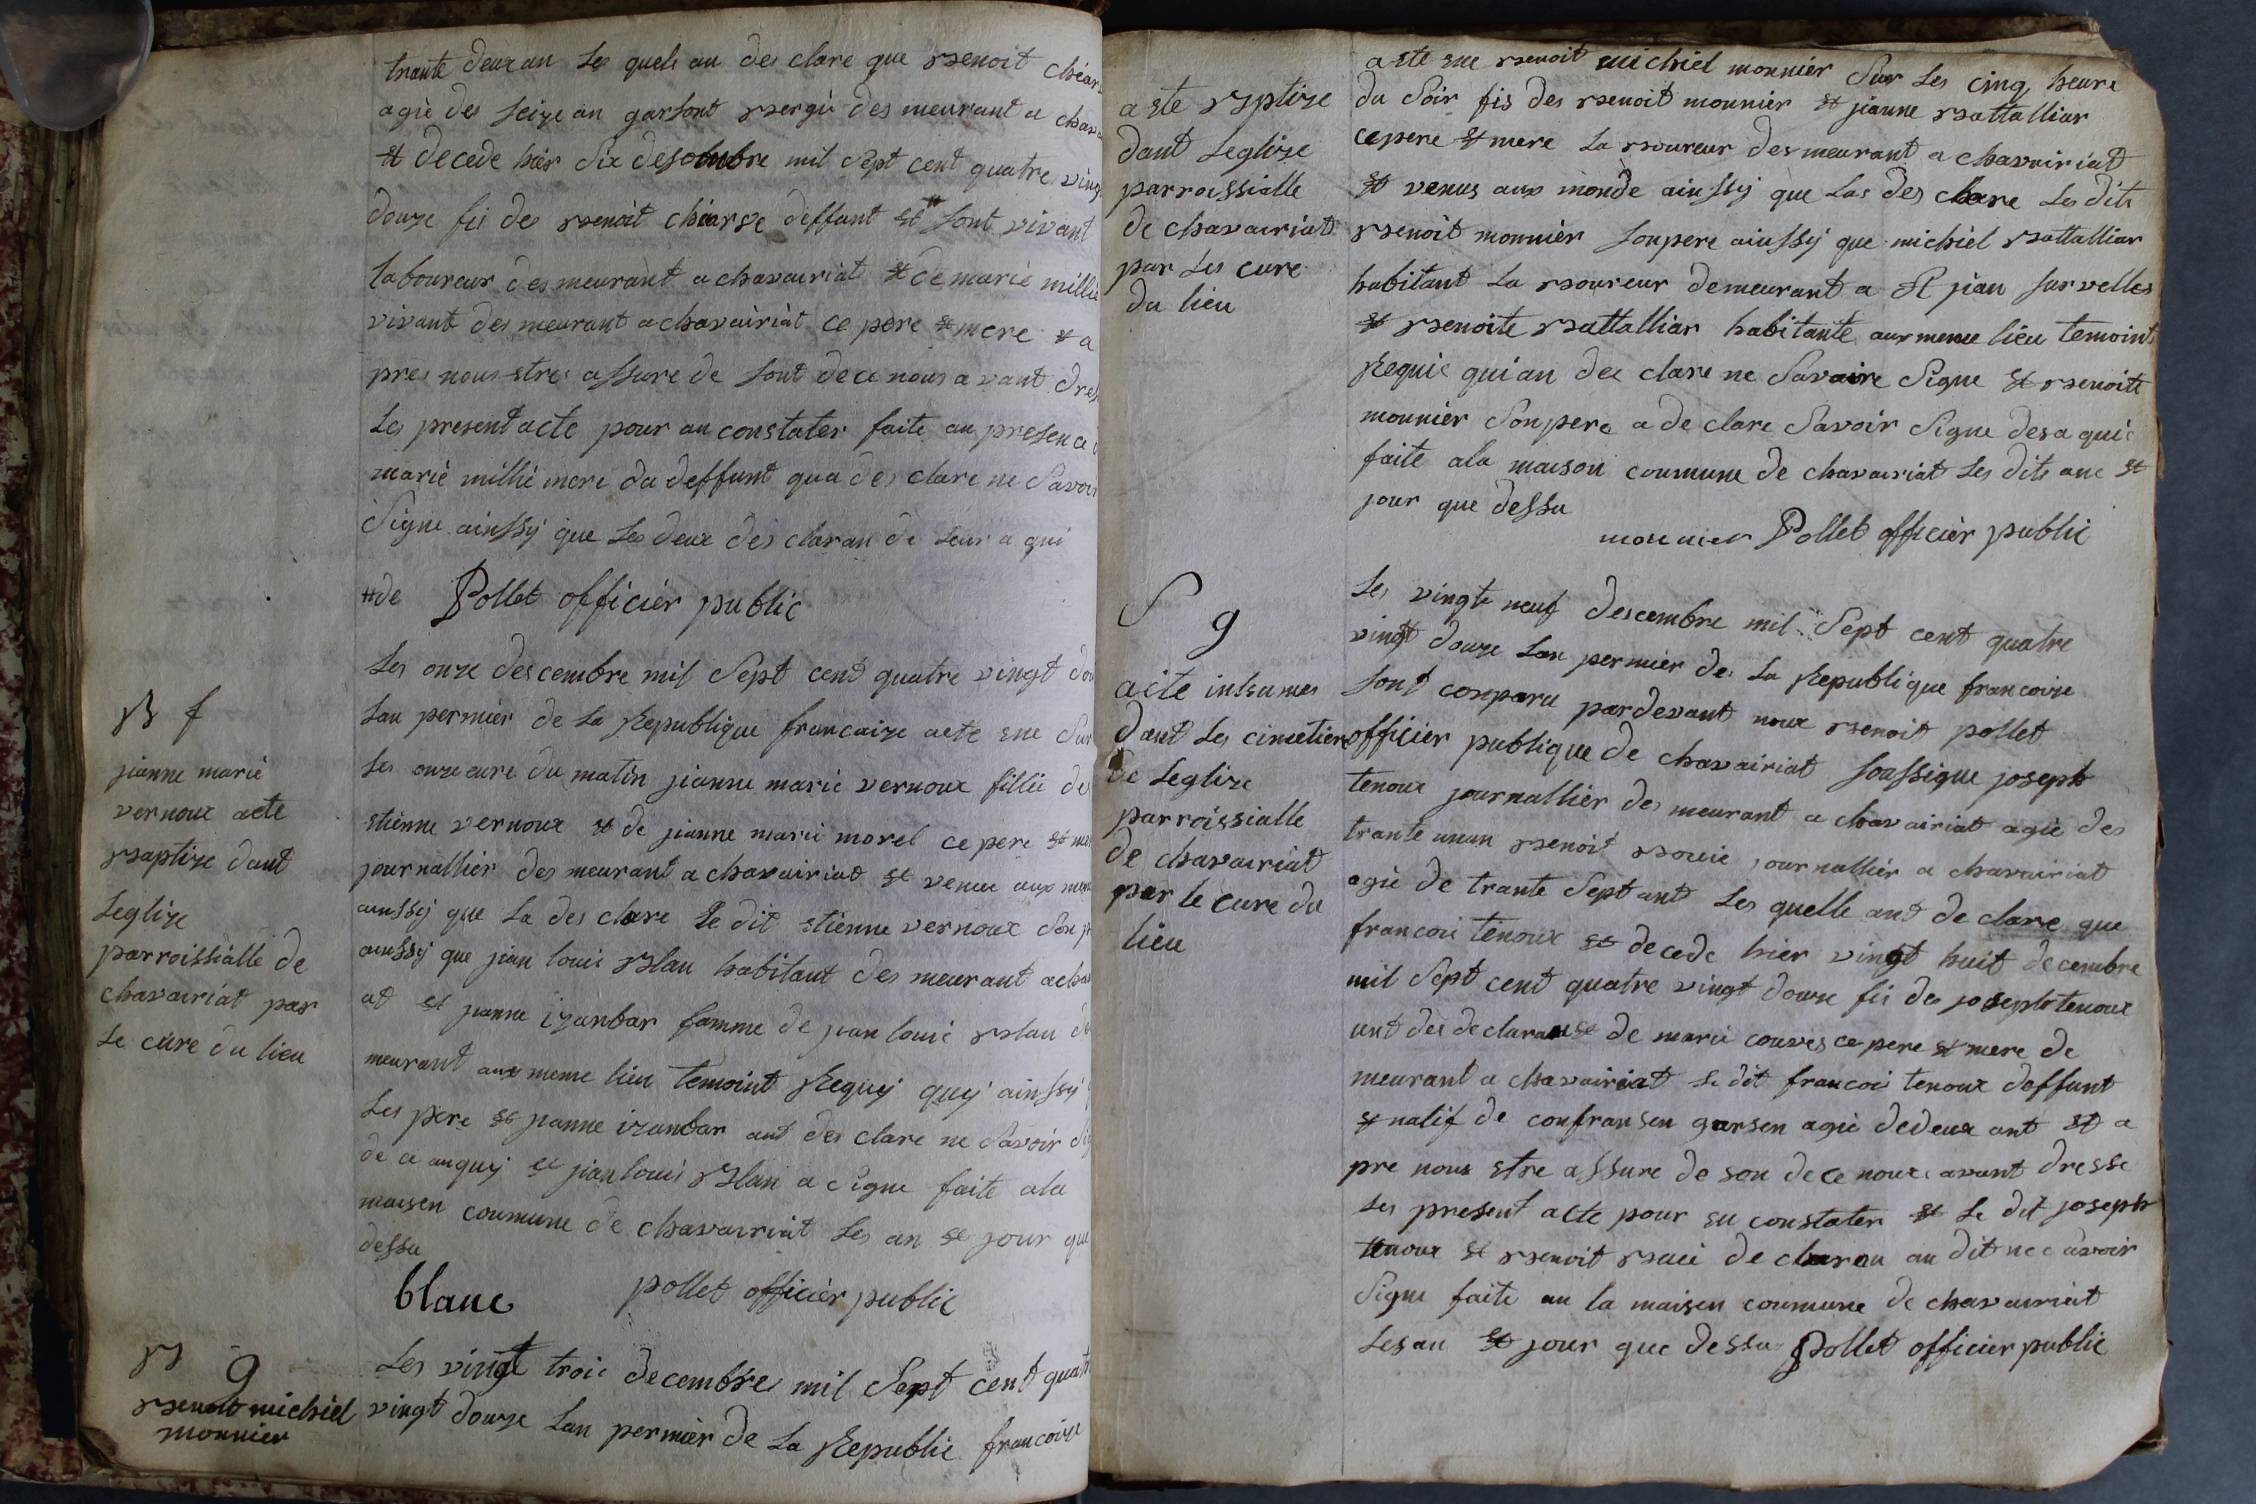 trante deux an Les quels an des clare que Benoit
agie des Seize an garsont Bergie des meurant a
et decede hier Six desembre mil Sept cent quatre
douze fis des Benoit chiarve deffunt et sont vivant
laboureur des meurant a chavairiat et de marie millie
vivant des meurant a chavairiat ce pere et mere et a
pres nous estres assure de sont dece nous avant
Les present acte pour an constater faite an presence
marie millie mere du deffunt qua des clare ne Savoir
Signe ainssy que Les deux des claran de leur a qui
#de Pollet officier public
B f
jianne marie
vernoux acte
Baptize dant
Leglize
parroissialle de
chavairiat par
Le cure du lieu
Les onze descembre mil Sept cent quatre vingt
Lan permier de La Republique francaize acte ene Sur
Les onze eure du matin jianne marie vernoux fillie de
etienne vernoux et de jianne marie morel ce pere et
journallier des meurant a chavairiat et venue aux
ainssy que La des clare Le dit etienne vernoux Son
ainssy que jian louis Blan habitant des meurant
at et jianne izanbar famme de jian louis Blan
meurant aux meme lieu temoint Requy quy ainssy
Les pere et jianne izanbar ant des clare ne Savoir
de ce anquy et jian louis Blan a Signe faite ala
maisen coumune de chavairiat Les an et jour que
dessu
blanc pollet officier public
B g
Benoit michiel
monnier
Les vingt trois decembres mil Sept cent
vingt douze Lan permier de La Republic francoize
aste Bptize
dant Leglize
parroissialle
de chavairiat
par Les cure
du lieu
a ete ene Benoit michiel monnier Sur Les cinq heure
du Soir fis des Benoit monnier et jianne Battalliar
ce pere et mere La Boureur des meurant a chavairiat
et venus aux monde ainssy que Las des clare Les dits
Benoit monnier Son pere ainssy que michiel Battalliar
habitant La Boureur demeurant a St jian survelles
et Benoite Battalliar habitante aux meme lieu temoint
Requis qui an des clare ne Savaire Signe et Benoite
monnier Son pere a de clare Savoir Signe des a quis
faite ala maison coumune de chavairiat Les dits ane et
jour que dessu
mounier Pollet officier public
S g
acte inhumes
dant Les cimetiere
de Leglize
parroissialle
de chavairiat
par le cure du
lieu
Les vingte neuf descembre mil Sept cent quatre
vingt douze Lan permier de La Republique francoize
Sont conparu pardevant noux Benoit pollet
officier publique de chavairiat soussigne joseph
tenoux journallier des meurant a chavairiat agie des
trante un an Benoit Bouie journallier a chavairiat
agie de trante Sept ant Les quelle ant de clare que
francois tenoux et decede hier vingt huit decembre
mil Sept cent quatre vingt douze fis des joseph tenoux
unt des declarans et de marie couves ce pere et mere de
meurant a chavairiat Le dit francois tenoux deffunt
et natif de confransen garsen agie de deux ant et a
pre nous etre assure de son dece nous avant dresse
Les present acte pour en constater et Le dit joseph
tenoux et Benoit Bouie de claran an dit nec avoir
Signe faite an la maisen coumune de chavairiat
Les an et jour que dessu Pollet officier public